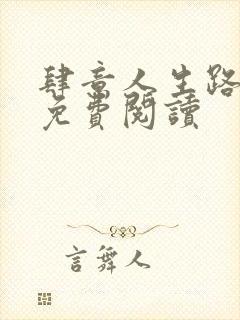 肆意人生路
免費閱讀
言舞人